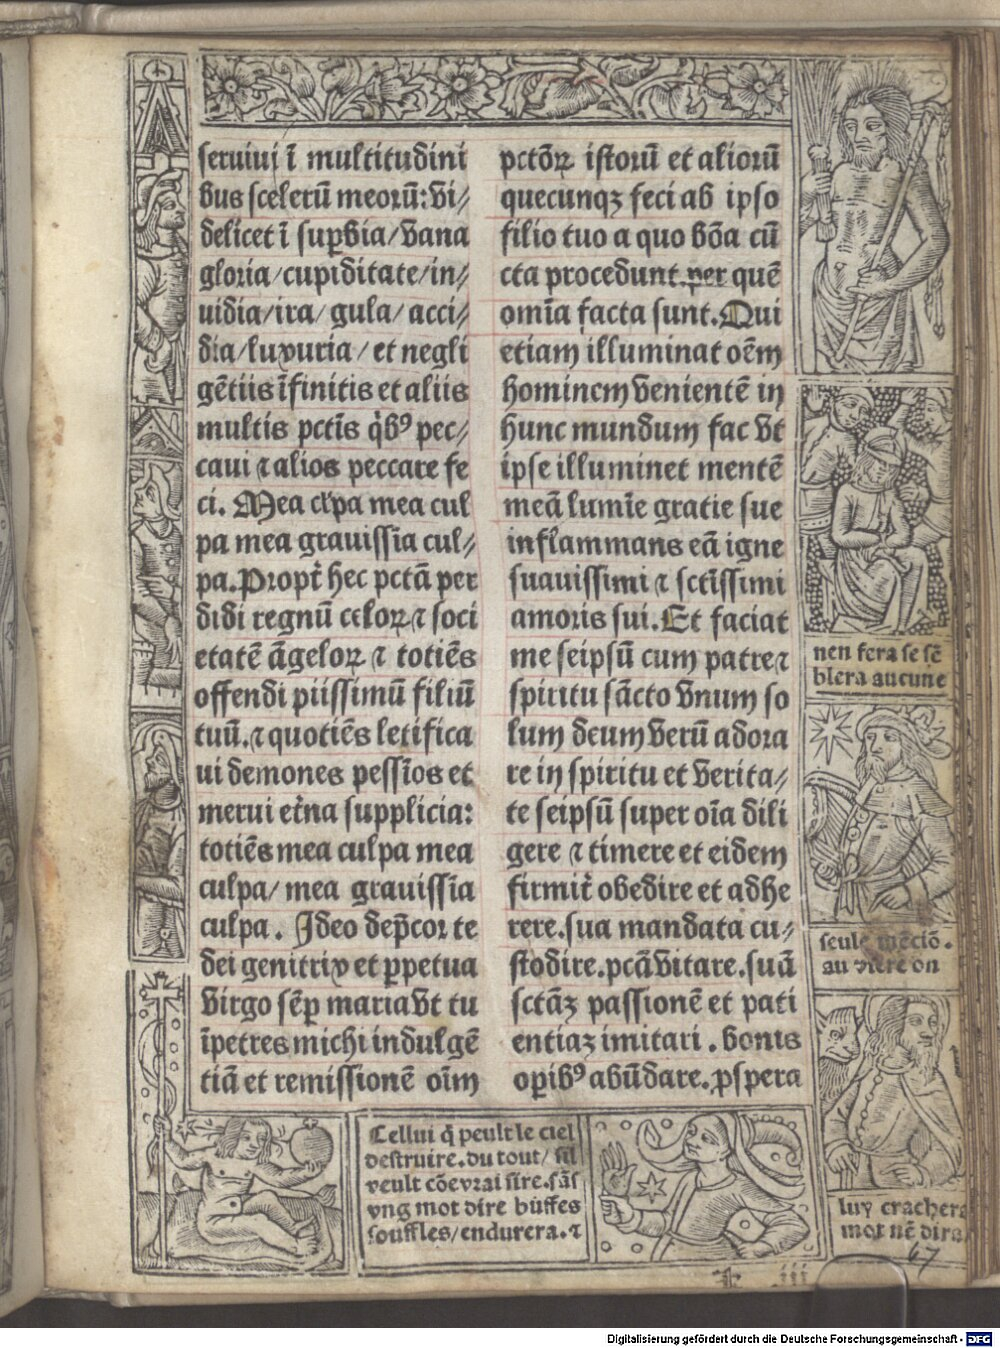 seruiui ī multitudini
bus scelerū meorū: vi⸗
delicet ī suꝑbia/vana
gloria/cupiditate/in⸗
uidia/ira/gula/acci⸗
dia/luxuria/et negli
gētiis īfinitis et aliis
multis pctīs q̇bꝰ pec⸗
caui ⁊ alios peccare fe
ci. Mea cl̓pa mea cul
pa mea grauissīa cul⸗
pa. Propt̄ hec pctā per
didi regnū celoꝝ ⁊ soci
etatē āgeloꝝ ⁊ totiēs
offendi piissimū filiū
tuū.⁊ quotiēs letifica
ui demones pessīos et
merui et̄na supplicia:
totiēs mea culpa mea
culpa/ mea grauissīa
culpa. Ideo dep̄cor te
dei genitrix et ꝑpetua
virgo sēꝑ maria vt tu
īpetres michi indulgē
tiā et remissionē oīm
pctōꝝ istorū et aliorū
quecunqꝫ feci ab ipso
filio tuo a quo bōa cū
cta procedunt. per quē
omīa facta sunt. Qui
etiam illuminat oēm
hominem venientē in
hunc mundum fac vt
ipse illuminet mentē
meā lumīe gratie sue
inflammans eā igne
suauissimi ⁊ sctīssimi
amoris sui. Et faciat
me seipsū cum patre ⁊
spiritu sācto vnum so
lum deum verū adora
re in spiritu et verita⸗
te seipsū super oīa dili
gere ⁊ timere et eidem
firmit̄ obedire et adhe
rere. sua mandata cu⸗
stodire. pcā vitare. suā
sctāꝫ passionē et pati
entiaꝫ imitari. bonis
oꝑibꝰ abūdare. ꝓspera
nen fera se sē
blera aucune
seule mēciō.
au viere on
luy crachera
mot nē dira
Cellui q̄ peult le ciel
destruire. du tout/ sil
veult cōe vrai sire. sās
vng mot dire buffes
souffles/endurera. ⁊
67
iii
Digitalisierung gefördert durch die Deutsche Forschungsgemeinschaft - DFG